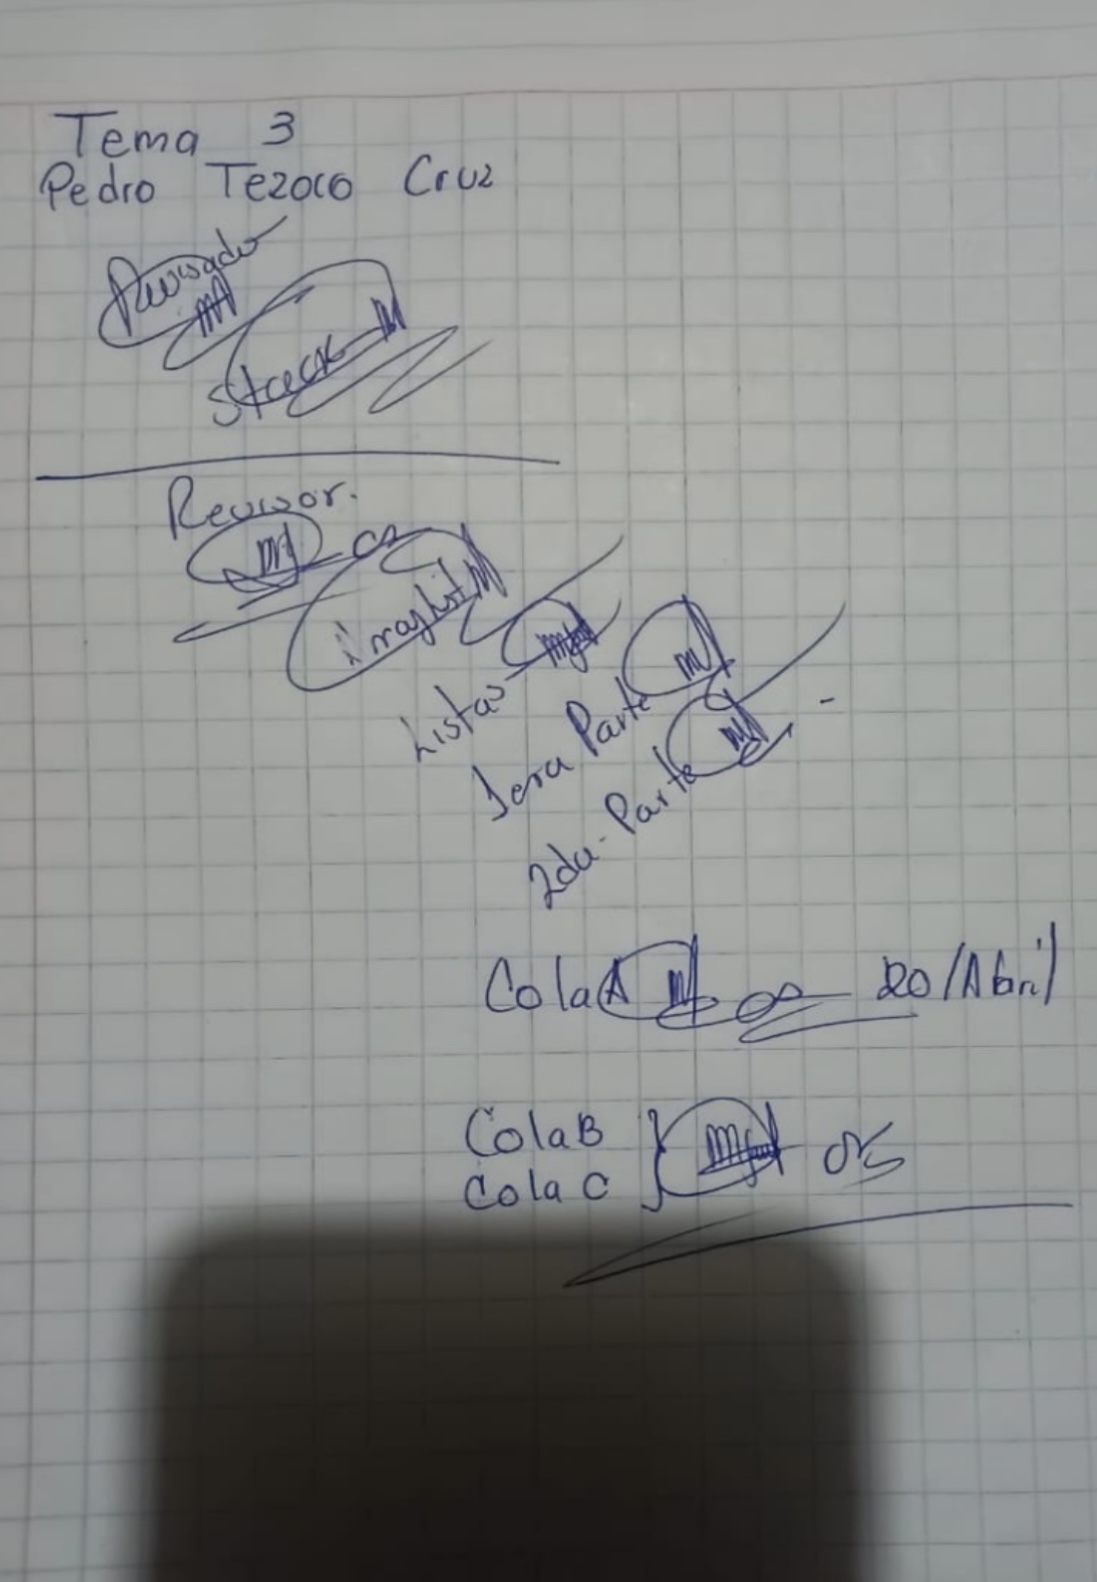 Tema 3
Pedro Tezoco Cruz
Revisado
Stack
Revisar.
ArrayList
Listas
1era Parte
2da. Parte
Cola A 20/Abril
Cola B
Cola C